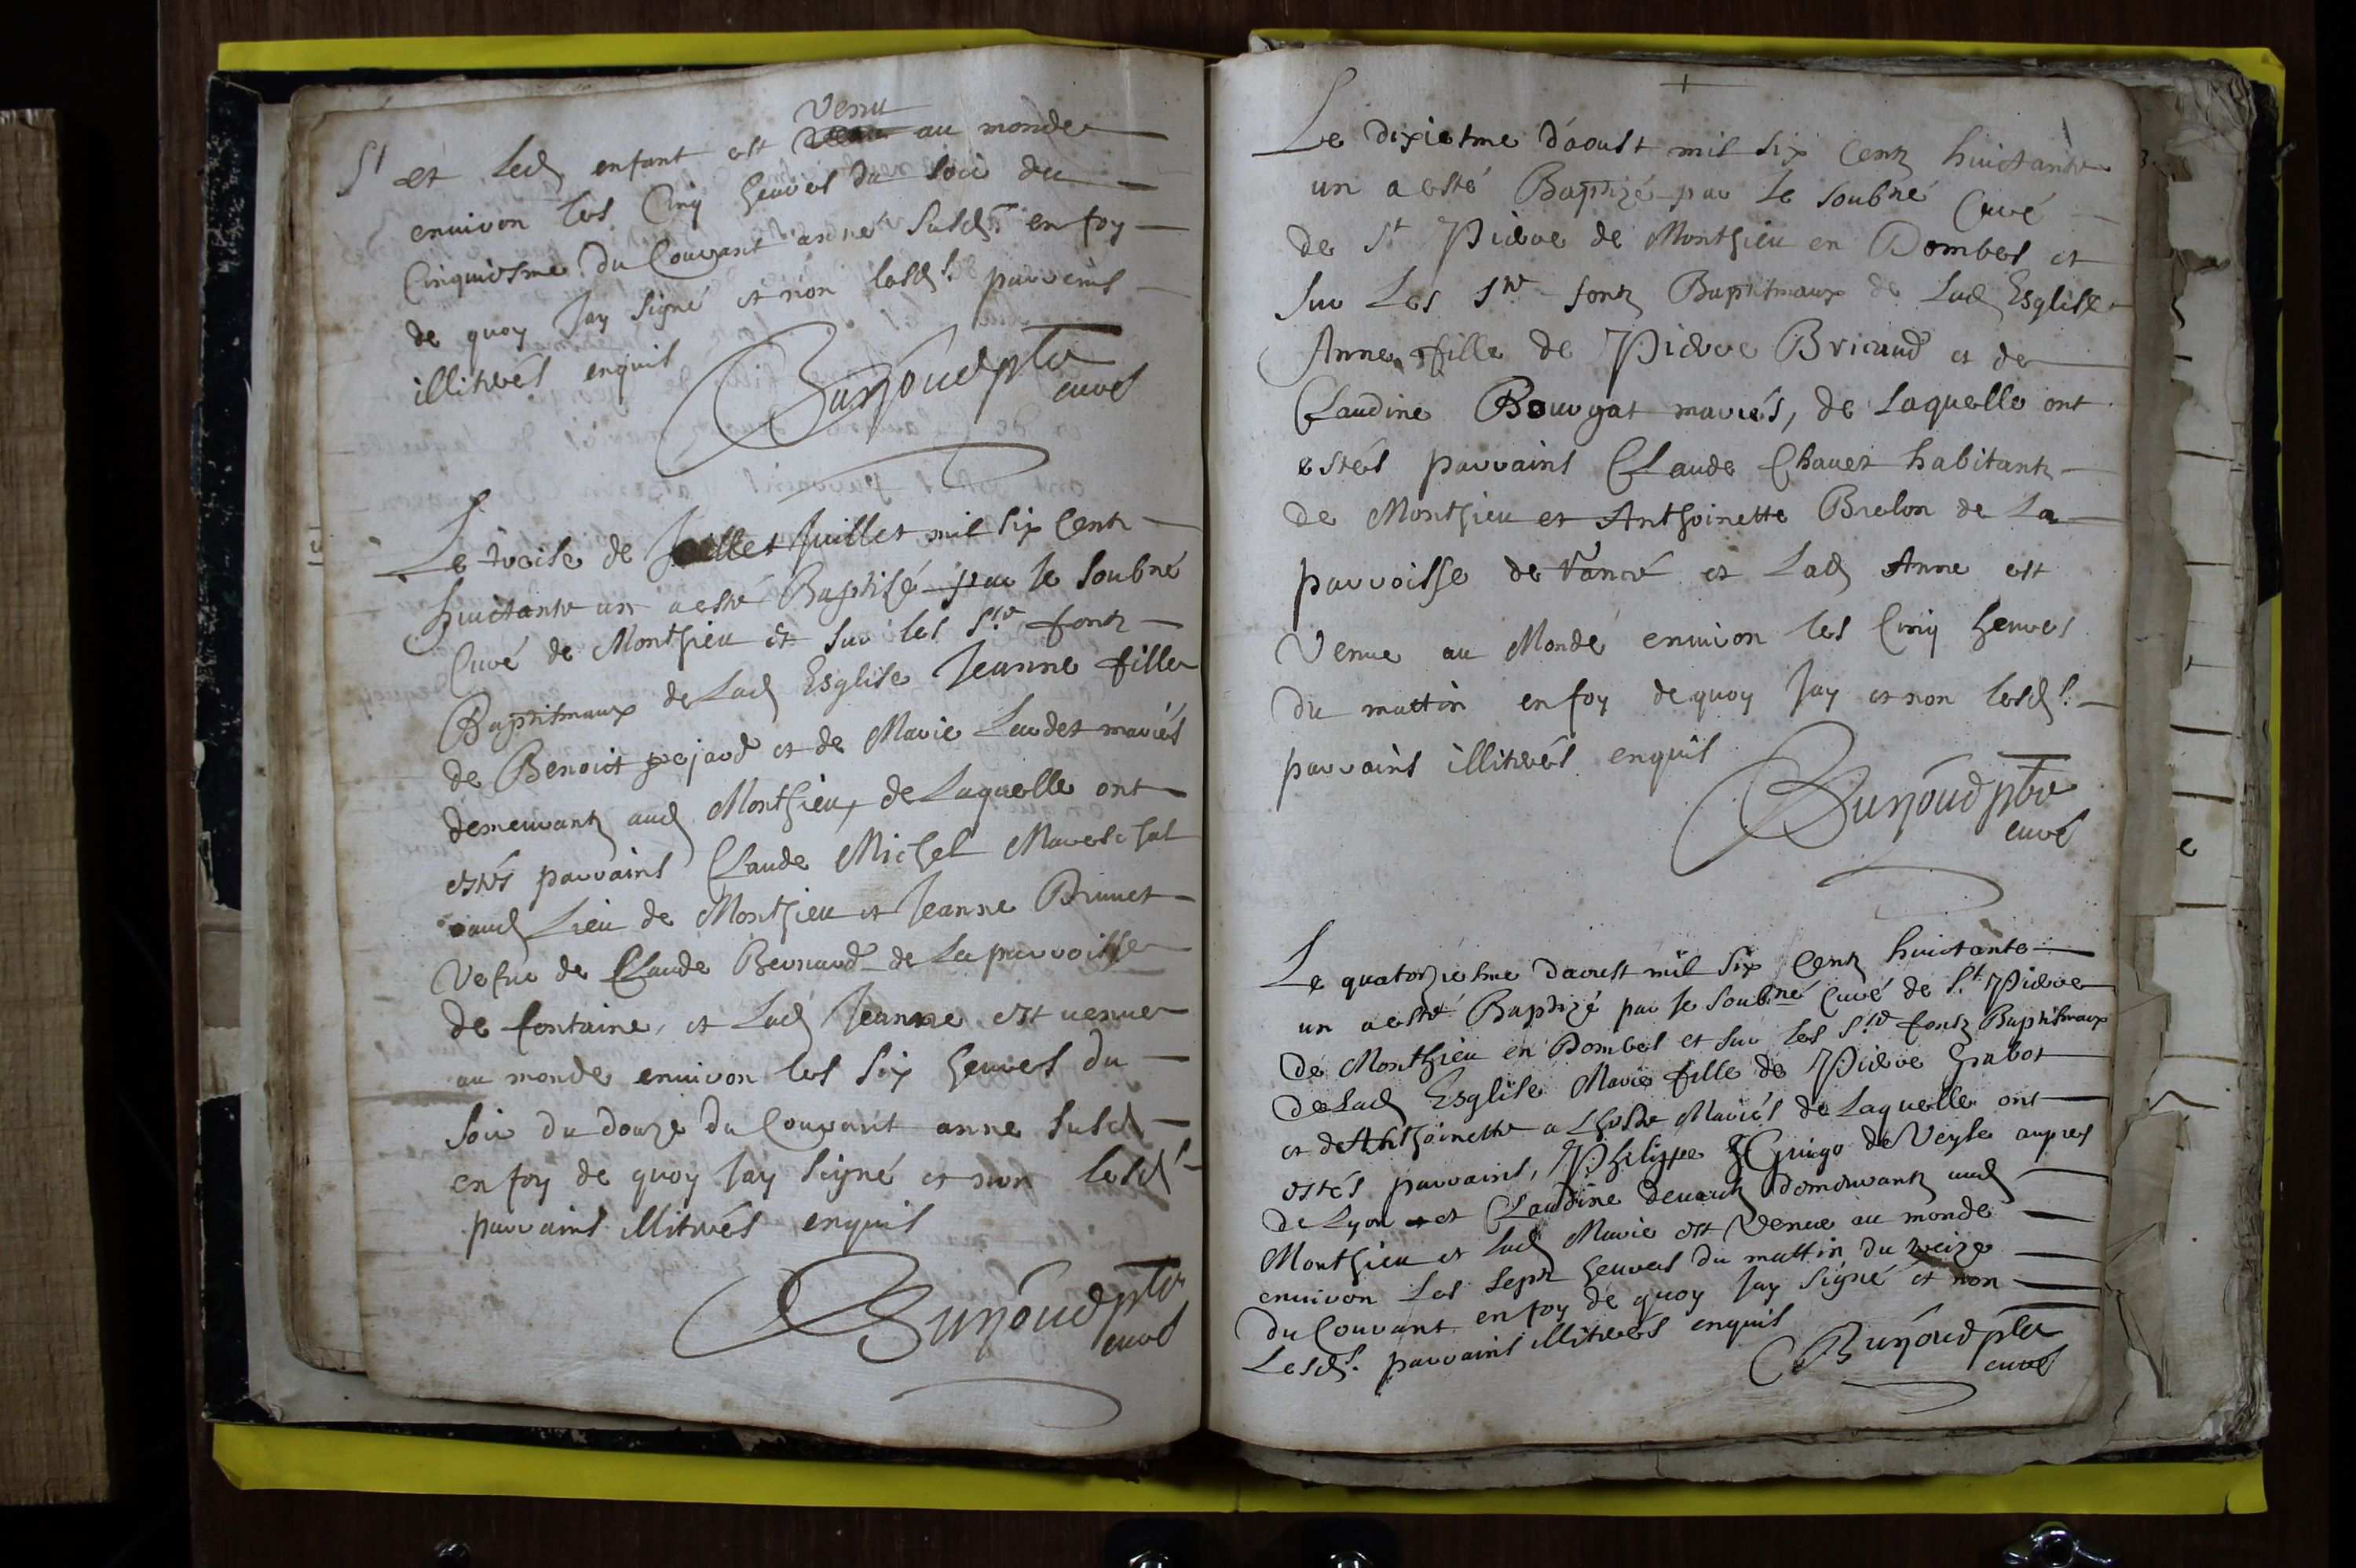 51 et led enfant est venu au monde
environ les Cinq heures du soir du
Cinquiesme du Courant anné susd en foy
de quoy Jay signé et non lesds parreins
illiterés enquis
Burjoud ptre
curé
Le treise de Juillet mil six Cent
huictante un a esté Baptisé par Je soubné
Curé de Monthieu et sur les Sts fontz
Baptismaux de Lad Esglise Jeanne fille
de Benoict pejard et de Marie Lardet mariés
demeurantz aud Monthieu, de Laquelle ont
estés parrains Claude Michel Mareschal
aud Lieu de Monthieu et Jeanne Brunet
Vefve de Claude Bernard de La parroisse
de fontaine, et Lad Jeanne est venue
au monde environ les six heures du
soir du douze du Courant anne susd
en foy de quoy Jay signé et non lesds
parrains illiterés enquis
Burjoud ptre
curé
Le dixiesme d'aoust mil six Centz huictante
un a esté Baptizé par Je soubné Curé
de St Pierre de Monthieu en Dombes et
sur Les Sts fontz Baptismaux de Lad Esglise
Anne fille de Pierre Bricaud et de
Claudine Bourgat mariés, de Laquelle ont
estés parrains Claude Chanet habitantz
de Monthieu et Anthoinette Brelon de La
parroisse de Rancé et Lad Anne est
Venue au Monde environ les Cinq heures
du mattin en foy de quoy Jay et non lesds
parrains illiterés enquis
Burjoud ptre
curé
Le quatorziesme daoust mil six Centz huictante
un a esté Baptizé par Je soubné Curé de St Pierre
de Monthieu en Dombes et sur les Sts fontz Baptismaux
de Lad Esglise Marie fille de Pierre Grabot
et de Anthoinette Mariés de Laquelle ont
estés parrains, Philippe de Veyse aupres
de Lyon et Claudine demeurantz aud
Monthieu et Lad Marie est Venue au monde
environ Les Sept heures du mattin du treize
du Courant en foy de quoy Jay signé et non
Lesds parrains illiterés enquis
Burjoud ptre
curé